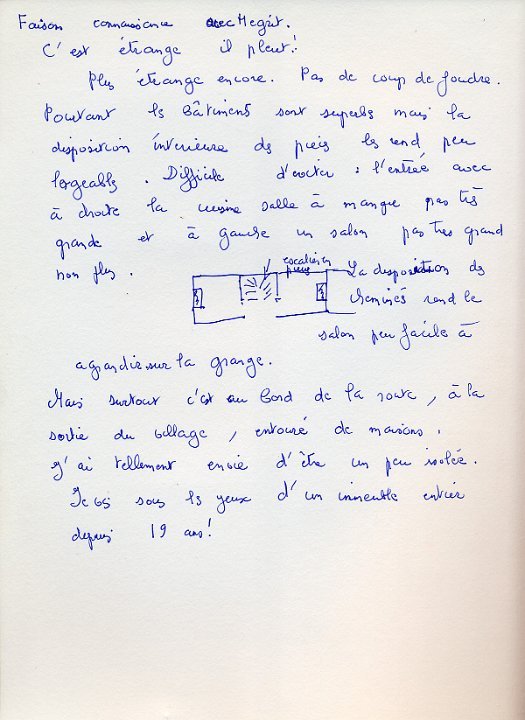 Faison connaissance avec Megrit.
C'est étrange il pleut!
Plus étrange encore. Pas de coup de foudre.
Pourtant les Bâtiments sont superbes mais la
disposition intérieure des pièces les rend peu
logeables. Difficile d' : l'entrée avec
à droite la cuisine salle à manger pas très
grande et à gauche un salon pas très grand
non plus.
escalier en
La disposition des
cheminées rend le
salon peu facile à
agrandir sur la grange.
Mais surtout c'est au bord de la route, à la
sortie du village, entouré de maisons.
J'ai tellement envie d'être un peu isolée.
Je vis sous les yeux d'un immeuble entier
depuis 19 ans!